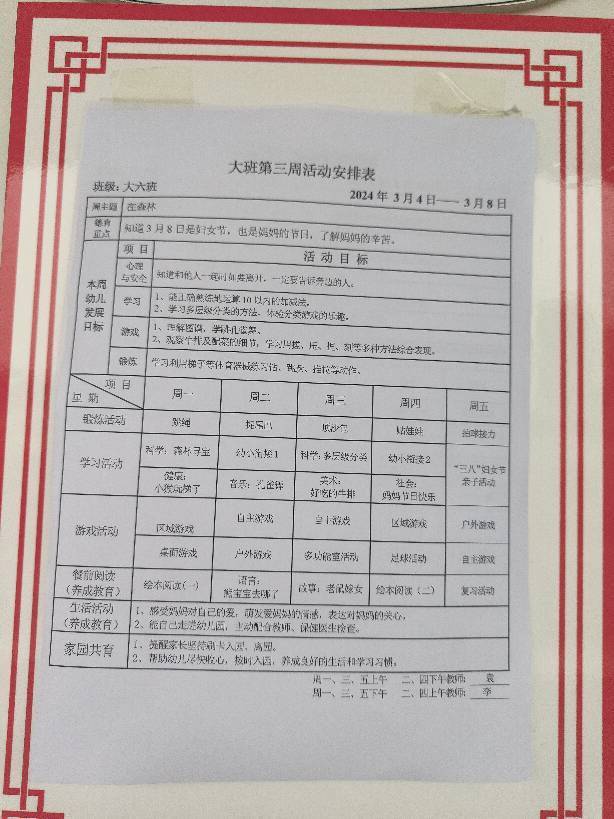 大班第三周活动安排表
班级：大六班
2024 年 3 月 4 日—— 3 月 8 日
周主题 在森林
德育重点 知道3月8日是妇女节，也是妈妈的节日，了解妈妈的辛苦。
本周幼儿发展目标
项 目 活 动 目 标
心理与安全 知道和他人一起时如要离开，一定要告诉旁边的人。
学习 1、能正确熟练地运算10以内的加减法。
2、学习多层级分类的方法，体验分类游戏的乐趣。
游戏 1、理解图谱，学跳孔雀舞。
2、观察牛排及配菜的细节，学习用搓、压、捏、刻等多种方法综合表现。
锻炼 学习利用梯子等体育器械练习钻、跳跃、
项 目
星 期 周一 周二 周三 周四 周五
锻炼活动 跳绳 贴娃娃 拍球接力
学习活动 科学：森林寻宝 幼小衔接1 科学：多层级分类 幼小衔接2 “三八”妇女节亲子活动
健康：小猴玩梯子 音乐：孔雀舞 美术：好吃的牛排 社会：妈妈节日快乐
游戏活动 区域游戏 自主游戏 自主游戏 区域游戏 户外游戏
桌面游戏 户外游戏 多功能室活动 足球活动 自主游戏
餐前阅读（养成教育） 绘本阅读（一） 语言：熊宝宝去哪了 故事：老鼠嫁女 绘本阅读（二） 复习活动
生活活动（养成教育） 1、感受妈妈对自己的爱，萌发爱妈妈的情感，表达对妈妈的关心。
2、能自己走进幼儿园，主动配合教师、保健医生检查。
家园共育 1、提醒家长坚持刷卡入园、离园。
2、帮助幼儿尽快收心，按时入园，养成良好的生活和学习习惯。
周一、三、五上午 二、四下午教师： 袁
周一、三、五下午 二、四上午教师： 李